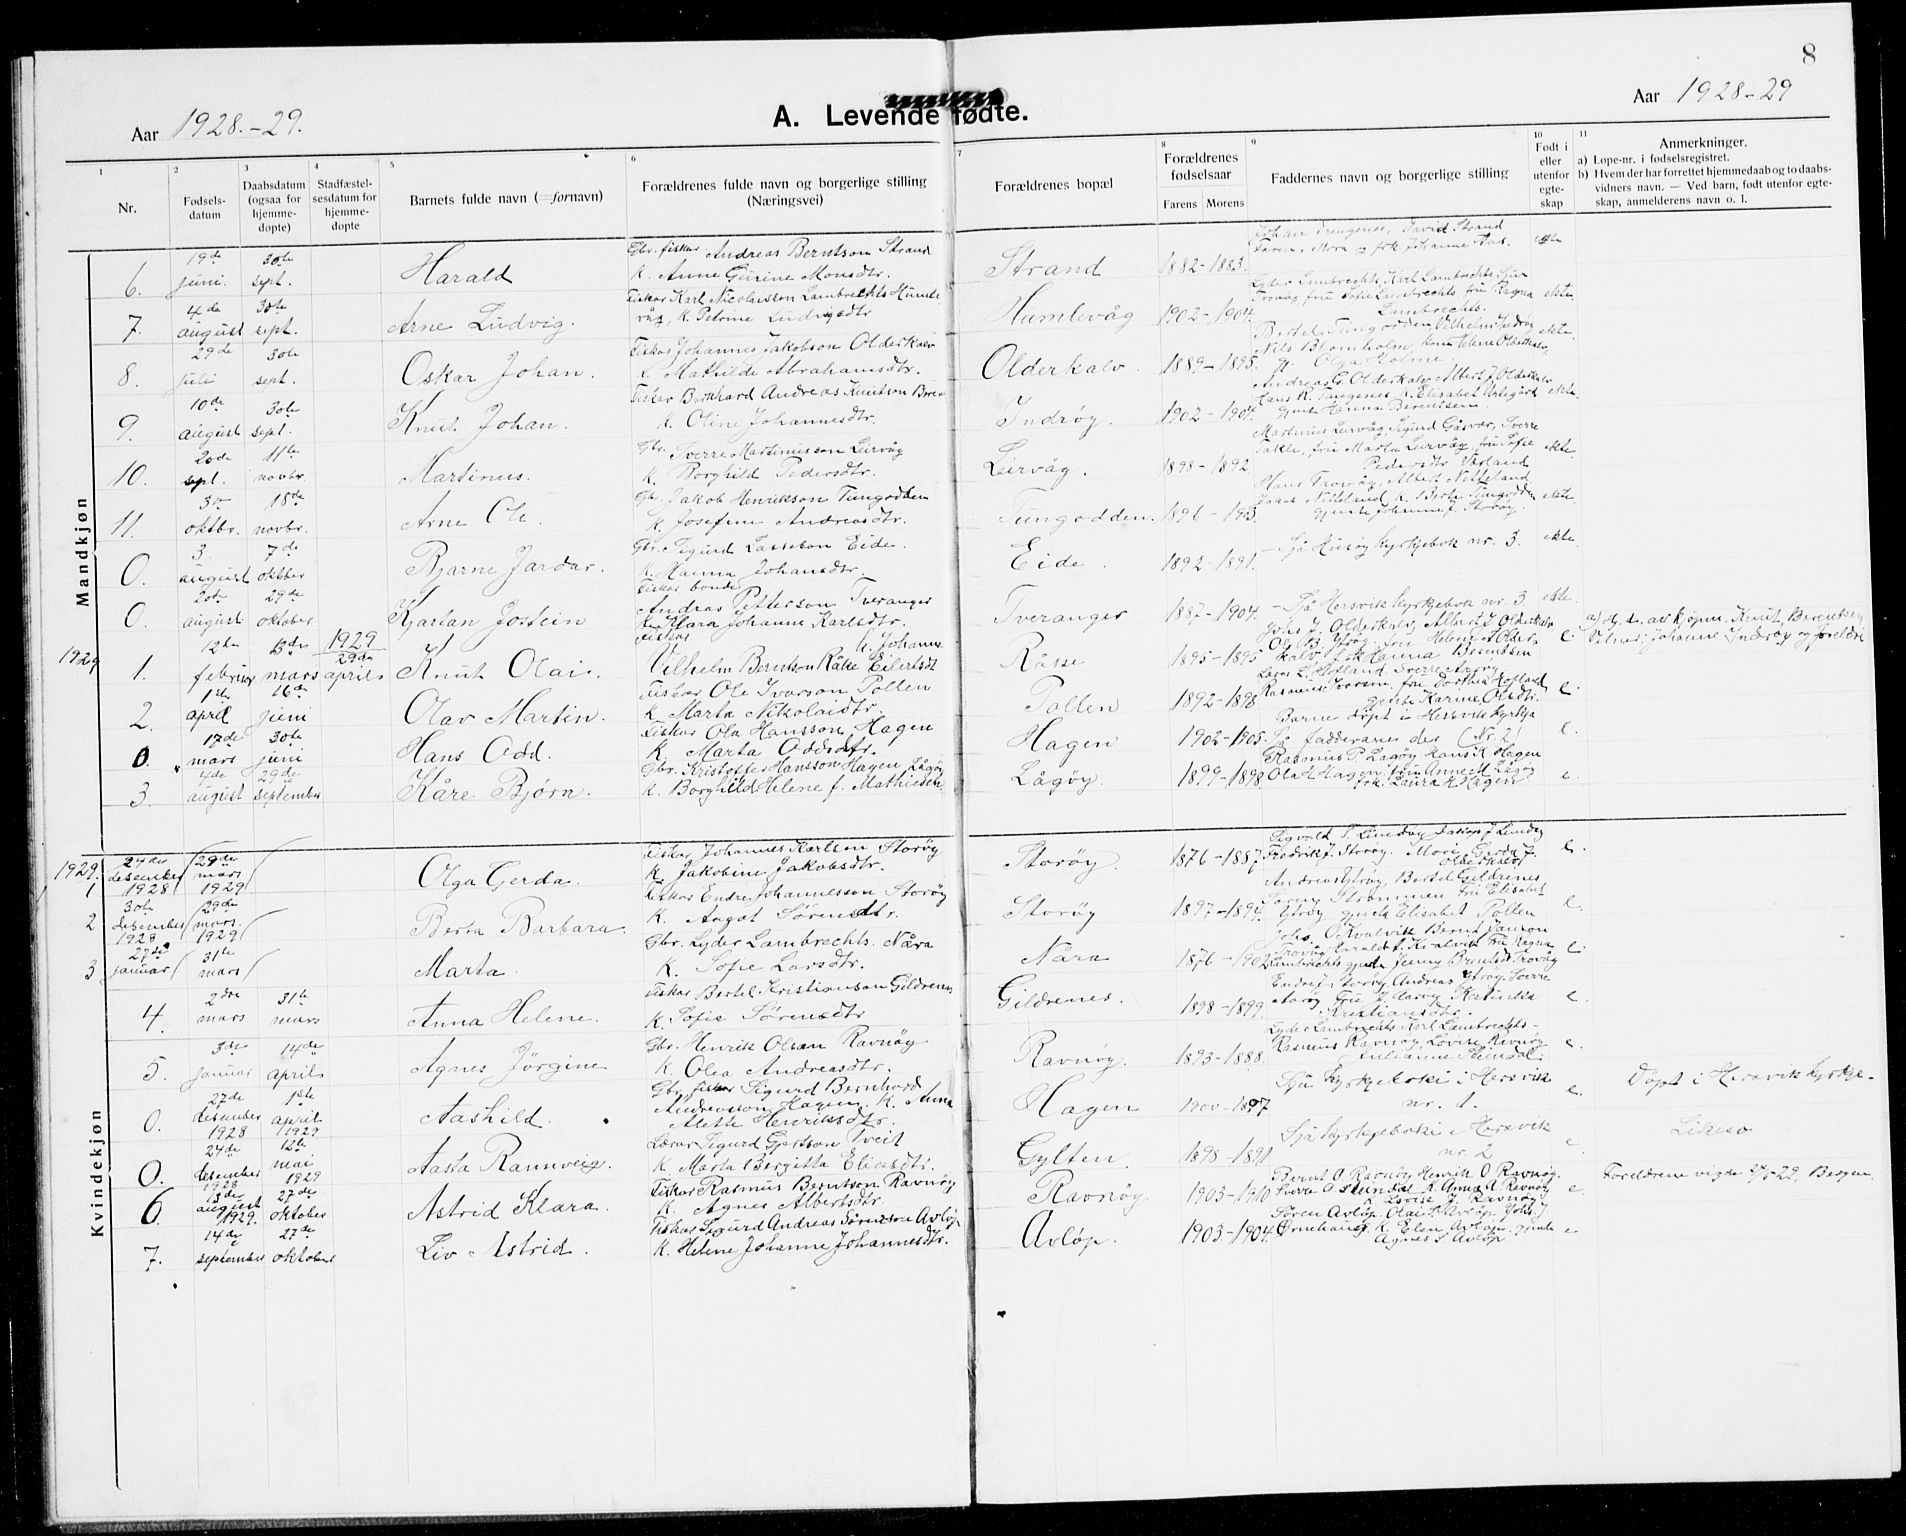 8
Aar 1928.-29.
A. Levende fødte.
Aar 1928-29
1 Nr.
2 Fødsels-datum
3 Daabsdatum (ogsaa for hjemme-døpte)
4 Stadfæstel-sesdatum for hjemme-døpte
5 Barnets fulde navn (=fornavn)
6 Forældrenes fulde navn og borgerlige stilling (Næringsvei)
7 Forældrenes bopæl
8 Forældrenes fødselsaar Farens Morens
9 Faddernes navn og borgerlige stilling
10 Født i eller utenfor egte-skap
11 Anmerkninger.
a) Løpe-nr. i fødselsregistret.
b) Hvem der har forrettet hjemmedaab og to daabs-vidners navn. — Ved barn, født utenfor egte-skap, anmelderens navn o. l.
Mandkjøn
6. 19de juni. 30te sept. Harald Gbr. fiskar Andreas Berntson Strand K. Anne Gurine Monsdtr. Strand 1882-1883. Johan David Strand Faren, Mora og frk Johanne
7. 4de august 30te sept. Arne Ludvig. Fiskar Karl Nicolaisson Lambrechts Humlevåg, K. Petrine Ludvigsdtr Humlevåg 1902-1904. Lyder Lambrechts, Karl Lambrechts fru Sofie Lambrechts fru Ragna Lambrechts. ekte
8. 29de juli 30te sept. Oskar Johan. Fiskar Johannes Jakobson Olderkalv K. Mathilde Abrahamsdtr. Olderkalv. 1889-1895. Bertel Tungodden Vilhelm Indrøy Nils Blomholm, Helene Olderkalv, Olga Holme. ekte
9. 10de august 30te sept. Knut Johan. Fiskar Bernhard Andreas Knutson K. Oline Johannesdtr. Indrøy. 1902-1904. Andreas Olderkalv, Albert J Olderkalv, Hans K. Tangenes K. Elisabet gjente Hanna Berentsen. ekte
10. 20de sept. 11te novbr. Martinus. Gbr. Sverre Martinusson Leirvåg K. Borghild Pedersdtr. Leirvåg. 1898-1892 Martinus Leirvåg, Sigurd Gåsvær, Sverre Takle, fru Marta Leirvåg, fru Sofie Pedersdtr ekte.
11. 3de oktbr. 18de novbr. Arne Ole. Gbr. Jakob Henrikson Tungodden K. Josefine Andreasdtr. Tungodden. 1896-1903. Hans Trovåg, Albert Nitteland Jakob Nitteland K. Berte Tungodden gjente Johanne J. Storøy. ekte
0. 3. august 7de oktber Bjarne Jardar. Gbr. Sigurd Lasseson Eide. K. Hanna Johansdtr. Eide. 1892-1891. - Sjå Husøy kyrkjebok nr. 3. ekte.
0. 20te august 29de oktober Kjartan Jostein Fiskar, bonde Andras Petterson Tveranger K. Klara Johanne Karlsdtr. Tveranger 1887-1904. - Sjå Hersvik kyrkjebok nr. 3 ekte.
1929
1. 12te februar 3de mars 1929 29de april Knut Olai. Fiskar Vilhelm Berntson Råke K. Johanna Eilertsdt Råke 1895-1895 Johs J. Olderkalv, Albert J Olderkalv Og B. Ytrøy, fru Helene A Olderkalv frk Hanna Berentsen e a) H. d. av kjøpm. Knut Berentsen Vitner: Johanne Indrøy og foreldri
2. 1ste april 16de juni Olav Martin. Fiskar Ole Ivarson Pollen K. Marta Nikolaidtr. Pollen 1892-1898 Lasse L. Hofland Sverre Aarøy, Rasmus Ivarson fru Dorthea Hofland gjente Karine Olsdtr. e
0. 17de mars 30te juni Hans Odd. Fiskar Ola Hansson Hagen K. Marta Oddsdtr. Hagen 1902-1905. Barne døpt i Hersvik kyrkja Sjå fadderane der (Nr. 2) e.
3. 4de august 29de september Kåre Bjørn. Gbr. Kristoffer Hansson Hagen Lågøy K. Borghild Helene f. Mathiesen. Lågøy. 1899-1898 Rasmus P. Lågøy Hans K Hagen Ola H Hagen, fru Anne M Lågøy frk. Laura H Hagen e.
Kvindekjøn
1929.
1 24de desember 1928 29de mars 1929 Olga Gerda. Fiskar Johannes Karlsen Storøy K. Jakobine Jakobsdtr. Storøy. 1876-1887 Sigvald T. Lindøy Jakop J Lindøy Fredrik J. Storøy. Mori Gerda J. Olderkalv e.
2 30te desember 1928 29de mars 1929 Berta Barbara. Fiskar Endre Johannesson Storøy K. Aagot Sørensdtr. Storøy 1897-1894. Andreas Ytrøy, Bertel Gildrenes, Søren Strømmen fru Elisabet Ytrøy gjenta Elisabet Pollen e.
3 27de januar 31te mars Marta. Gbr. Lyder Lambrechts. Nåra K. Sofie Larsdtr. Nåra 1876-1902 Johs. O Kvalvik Bernt Janson Trovåg Harald J. Kvalvik fru Regna Lambrechts gjenta Jenny Trovåg e
4. 2dre mars 31te mars Anna Helene. Fiskar Bertel Kristianson Gildrenes K. Sofie Sørensdtr Gildrenes. 1898-1899 Endre J. Storøy, Andreas Ytrøy Sverre Aarøy Fru J Aarøy Katinka Kristiansdtr. e.
5. 3de januar 14de april Agnes Jörgine Gbr. Henrik Olsen Ravnøy K. Olea Andreasdtr. Ravnøy. 1893-1888. Lyder Lambrechts Karl Lambrechts- Rasmus Ravnøy, Lovise Ravnøy Julianne Steindal. e.
0. 27de desember 1928 1ste april 1929 Aashild. Gbr. fiskar Sigurd Bernhard Andreasson Hagen. K. Anna Alette Henriksdtr. Hagen 1900-1897 Sjå kyrkjeboki i Hersvik nr. 1. e Døpt i Hersvik kyrkje.
0. 24de desember 1928 12te mai 1929 Aasta Rannveig. Lærar Sigurd Gjertson Tveit K. Marta Bergitta Eliasdtr. Gylten. 1898-1891 Sjå kyrkjeboki i Hersvik nr. 2 e Likeso
6. 13de august 1929. 27de oktober Astrid Klara. Fiskar Rasmus Berntson Ravnøy K. Agnes Albertsdtr. Ravnøy. 1903-1910 Bernt O Ravnøy, Henrik O Ravnøy. Sverre O Steindal K. Anna A. Ravnøy K Lovise J. Ravnøy. e. Foreldrene vigde 2/5-29, Bergen.
7. 14de september 27de oktober Liv Astrid. Fiskar Sigurd Andreas Sørenson Avløp K. Helene Johanne Johannesdtr. Avløp. 1903-1904. Søren Avløp. Olai S Avløp Johs. J Ørnehaug. K. Elen Avløp, gjente Agnes S Avløp e